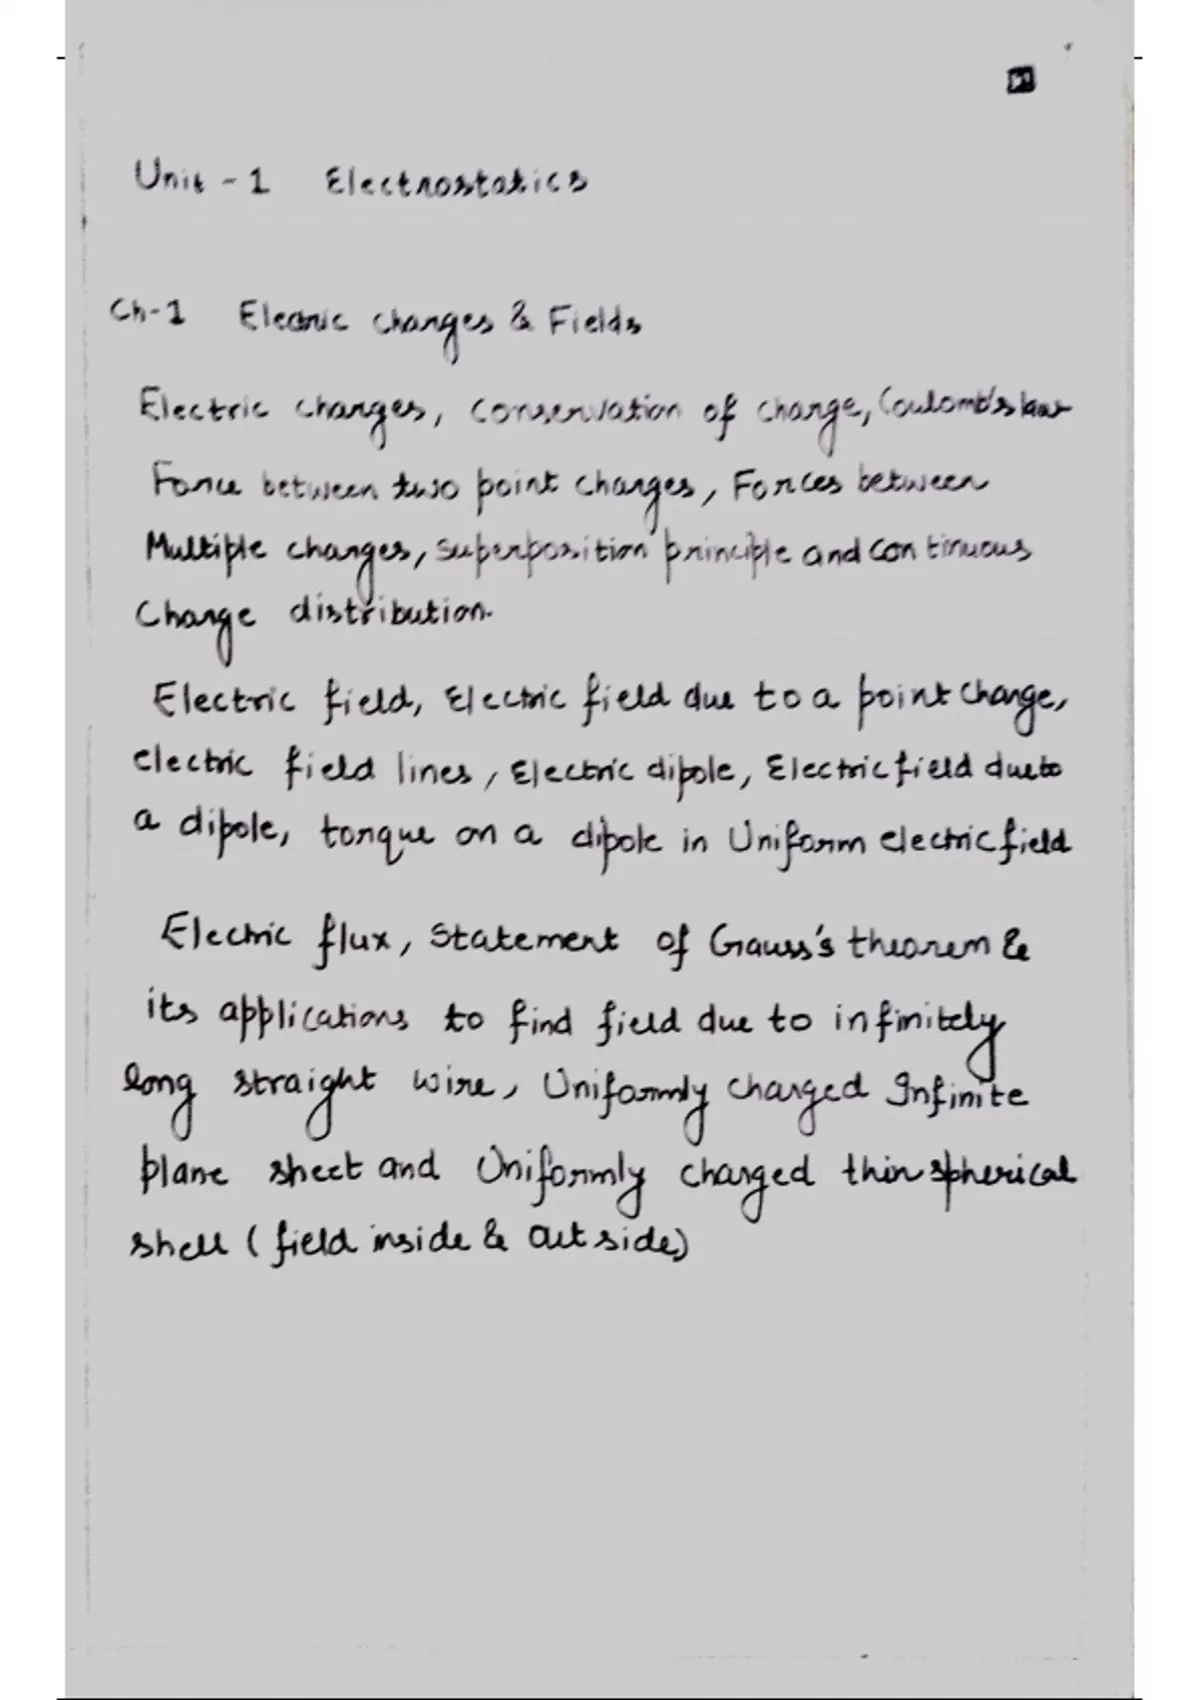 Unit - 1 Electrostatics
Ch-1 Electric charges & Fields
Electric charges, Conservation of charge, Coulomb's law
Force between two point charges, Forces between
Multiple charges, Superposition principle and continuous
Charge distribution.
Electric field, Electric field due to a point charge,
electric field lines, Electric dipole, Electric field due to
a dipole, torque on a dipole in Uniform electric field
Electric flux, Statement of Gauss's theorem &
its applications to find field due to infinitely
long straight wire, Uniformly charged Infinite
plane sheet and Uniformly charged thin spherical
shell (field inside & Outside)